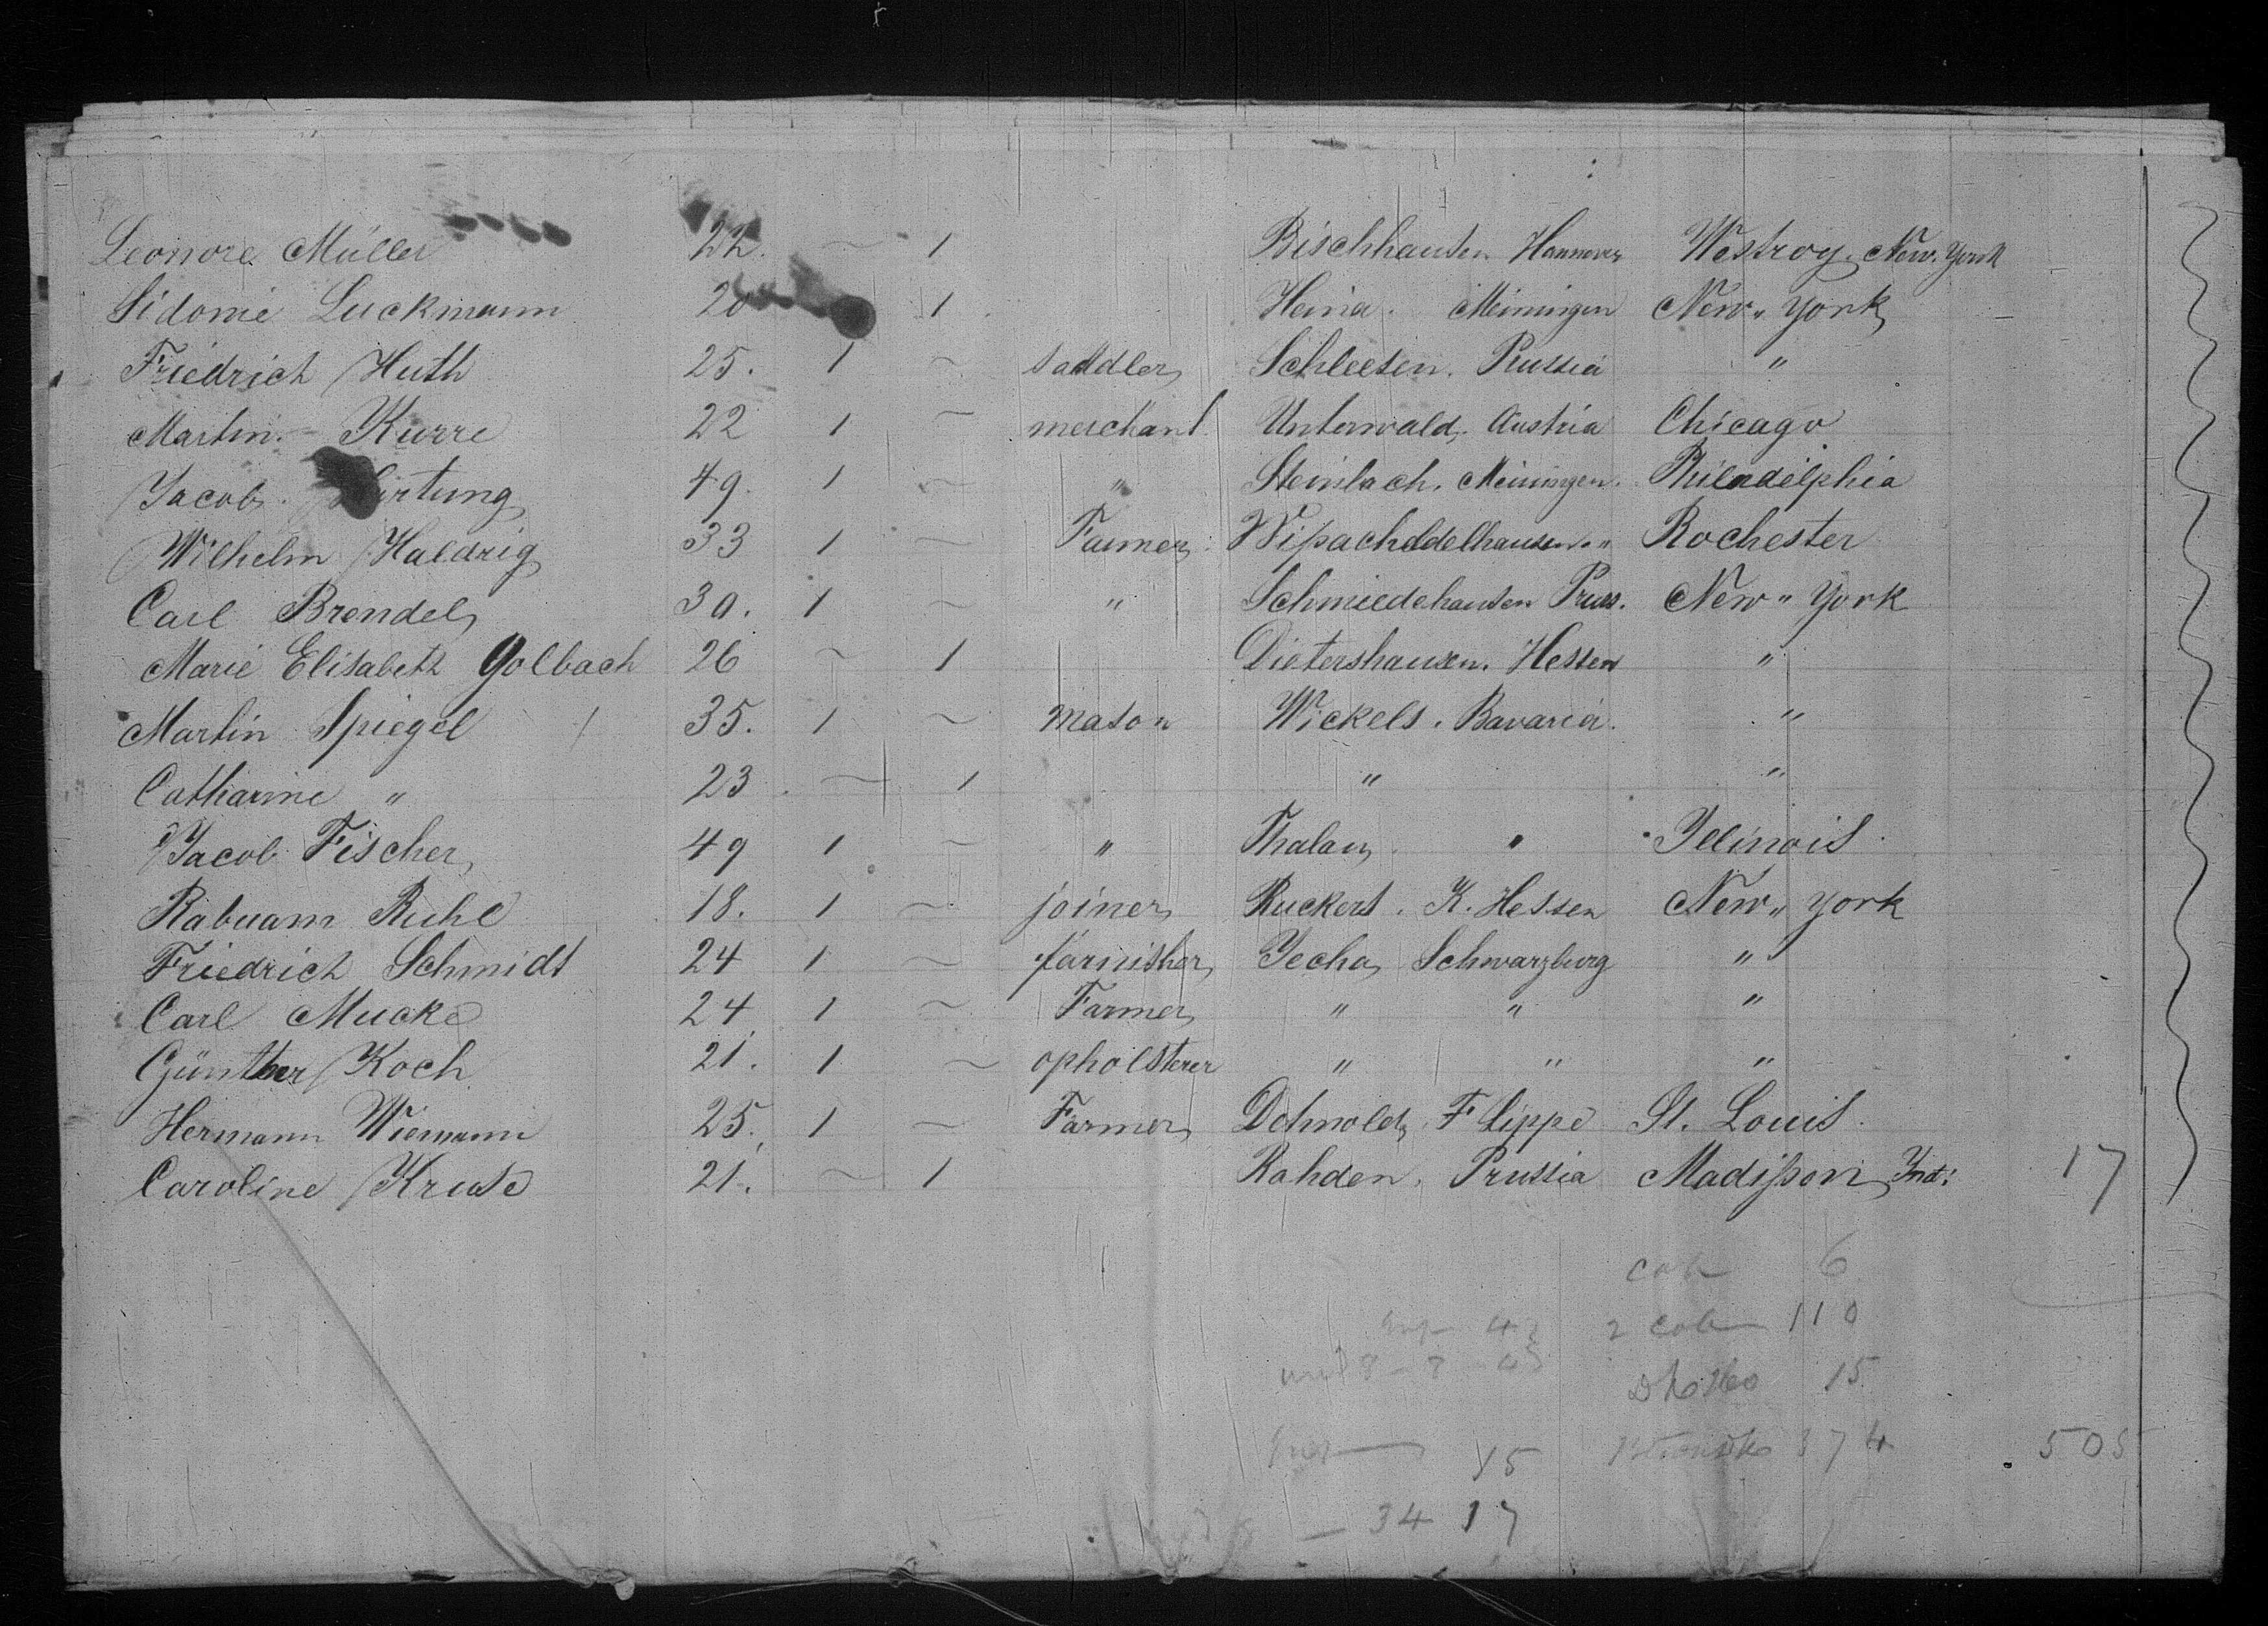 Leonore Müller 22. ~ 1 Bischhausen Hannover Westroy. New. York
Sidonie Luckmann 20 1 Heina. Meiningen New " York
Friedrich Huth 25. 1 ~ saddler Schleesen. Prussia "
Martin Kurre 22 1 ~ merchant Unterwald, Austria Chicago
Jacob. Hartung 49. 1 ~ " Steinbach. Meiningen. Philadelphia
Wilhelm Haldrig 33 1 ~ Farmer Wipacheddelhausen " Rochester
Carl Brendel 30. 1 ~ " Schmiedehausen Pruss. New " York
Marie Elisabeth Golbach 26 ~ 1 Dietershausen. Hessen "
Martin Spiegel 35. 1 ~ mason Wickels. Bavaria. "
Catharine " 23 ~ 1 " "
Jacob Fischer 49 1 ~ " Thalau " Illinois
Rabuam Ruhl 18. 1 ~ joiner Ruckers. K. Hessen New " York
Friedrich Schmidt 24 1 ~ farnisher Jecha Schwarzburg "
Carl Mucke 24 1 ~ Farmer " " "
Günther Koch 21. 1 ~ opholsterer " " "
Hermann Wiemann 25. 1 ~ Farmer Detmold, F Lippe St. Louis.
Caroline Kruse 21. ~ 1 Rahden. Prussia Madison Ind: 17
6
4 2 110
15
15 374 505
34 17